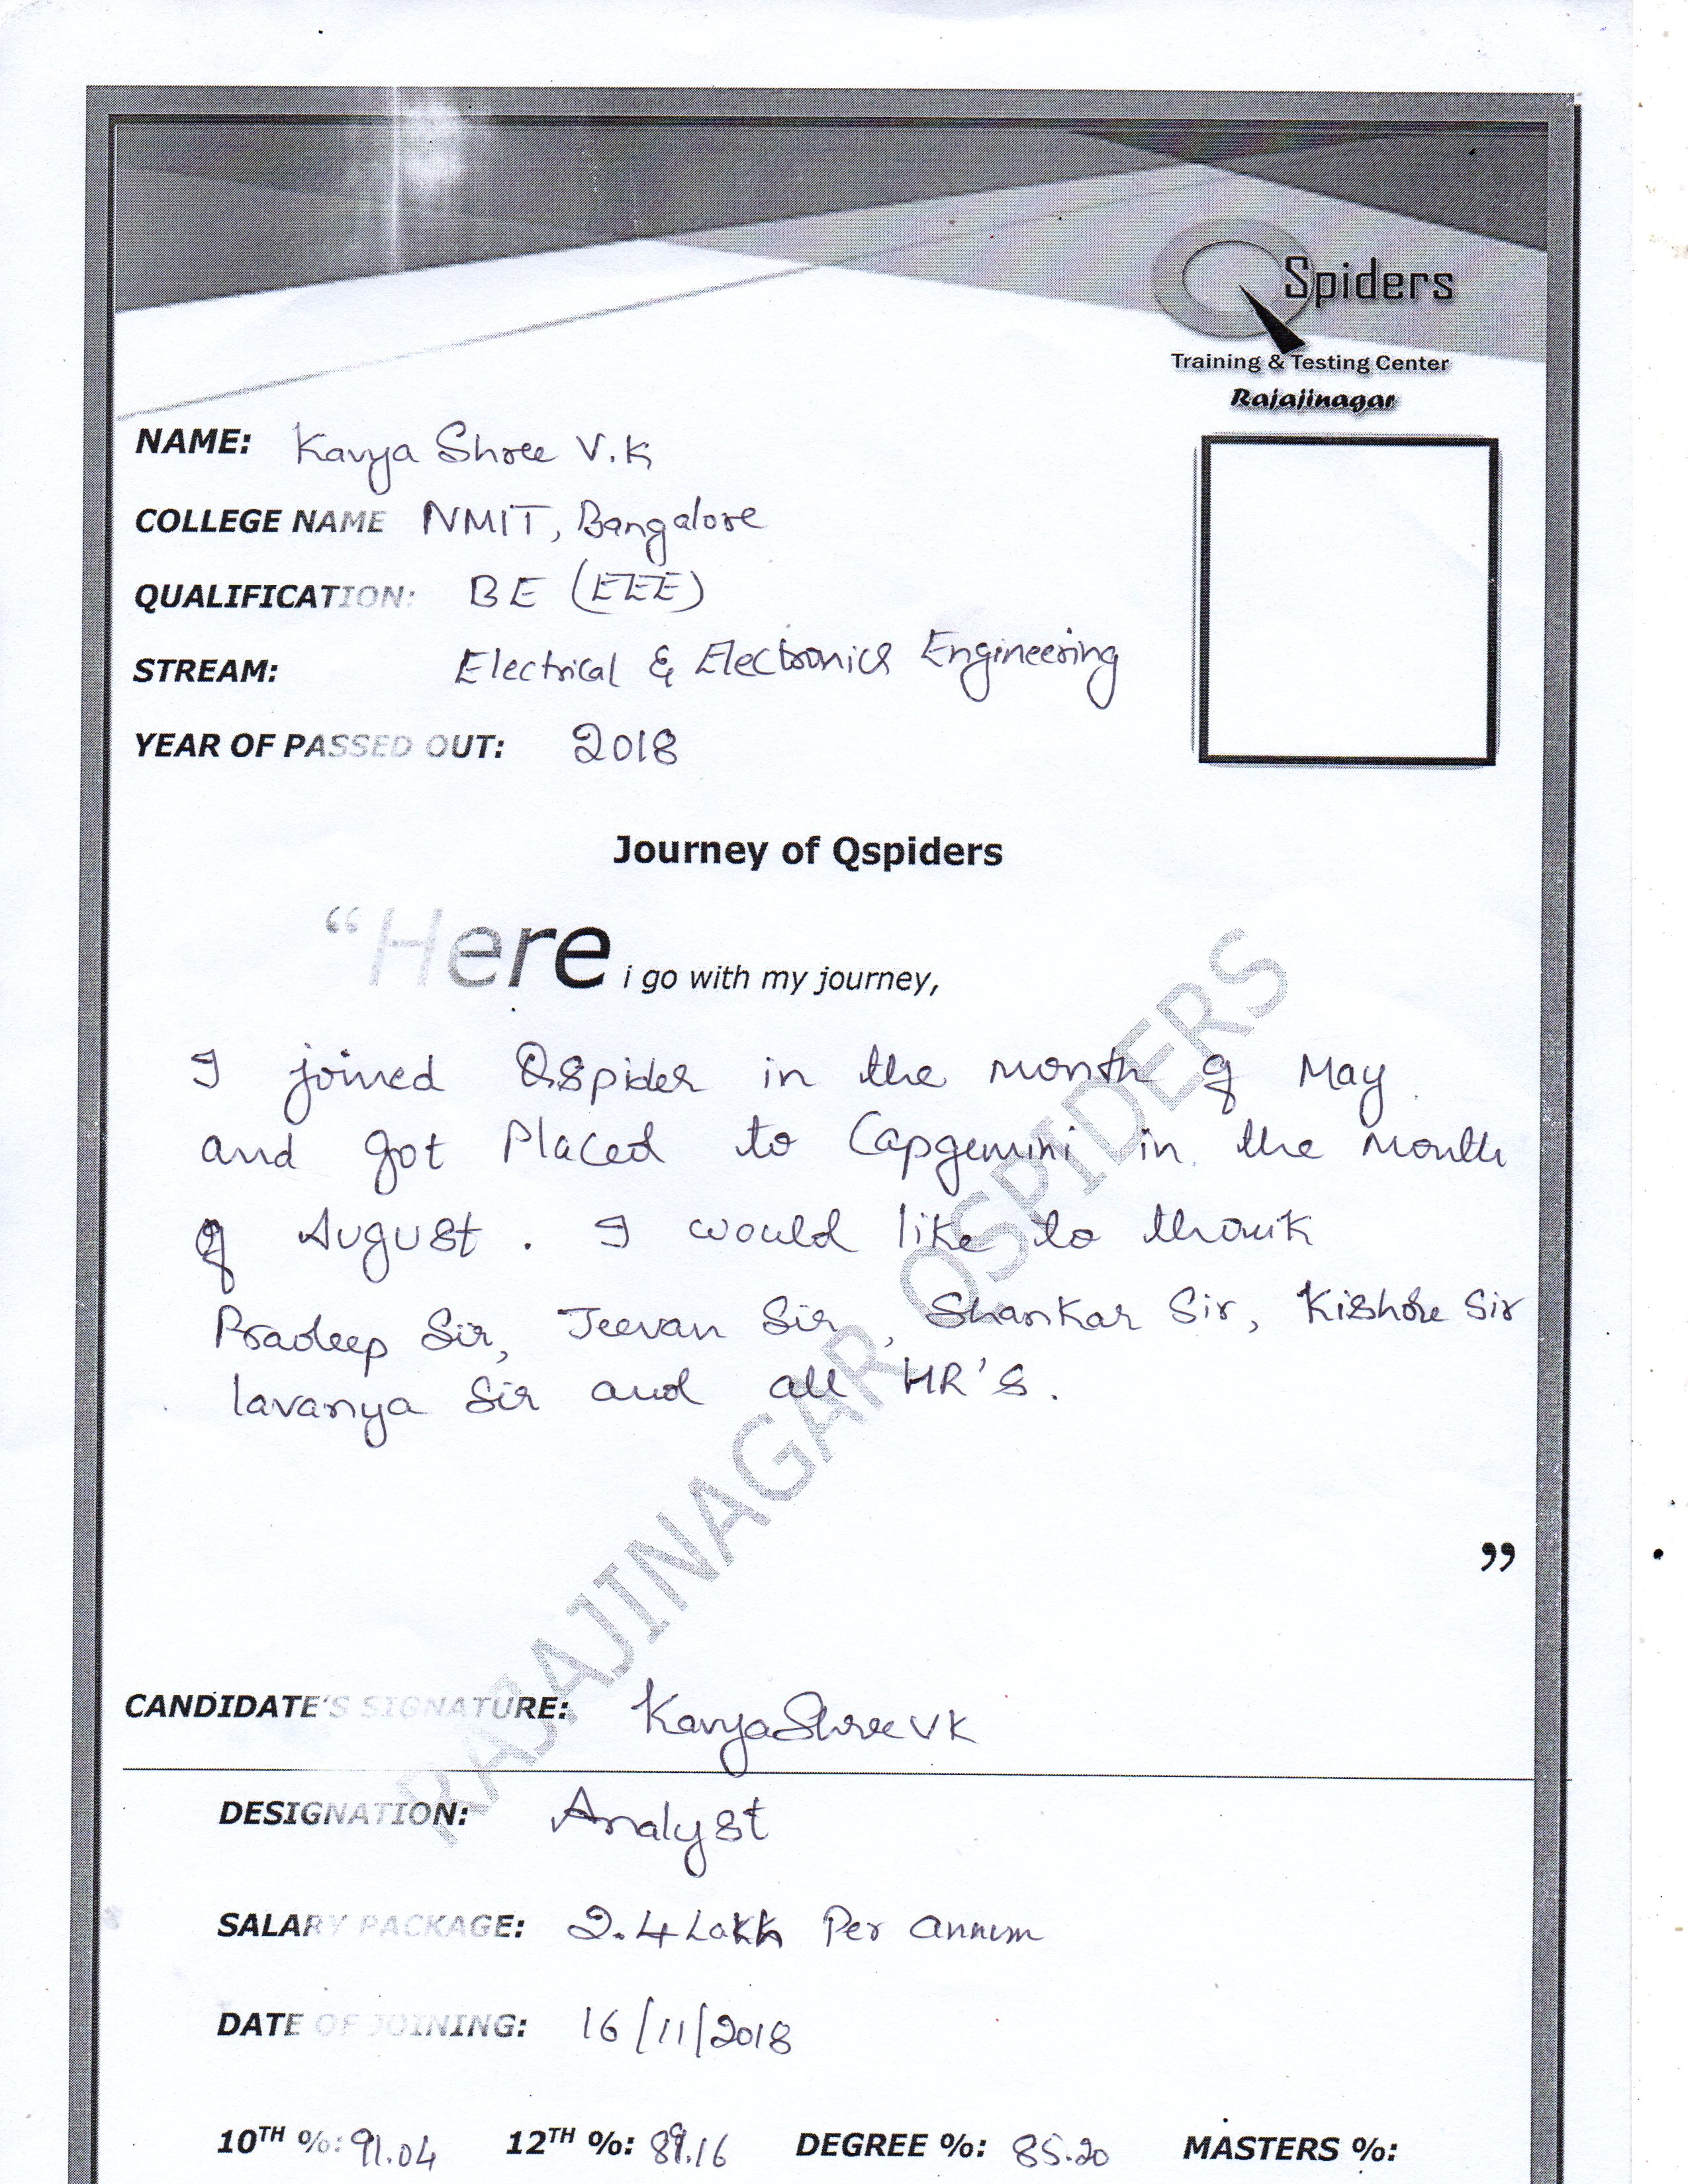 QSpiders
Training & Testing Center
Rajajinagar
NAME: Kavya Shree V.K
COLLEGE NAME NMIT, Bangalore
QUALIFICATION: BE (EEE)
STREAM: Electrical & Electronics Engineering
YEAR OF PASSED OUT: 2018
Journey of Qspiders
“Here i go with my journey,
I joined QSpider in the month of May
and got Placed to Capgemini in the month
of August. I would like to thank
Pradeep Sir, Jeevan Sir, Shankar Sir, Kishore Sir
lavanya Sir and all HR's.
”
RAJAJINAGAR QSPIDERS
CANDIDATE'S SIGNATURE: KavyaShree VK
DESIGNATION: Analyst
SALARY PACKAGE: 2.4 Lakh Per annum
DATE OF JOINING: 16/11/2018
10TH %: 91.04 12TH %: 89.16 DEGREE %: 85.20 MASTERS %: